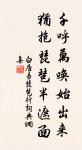 千呼萬喚始出來
猶抱琵琶半遮面
白居易琵琶行詞典網